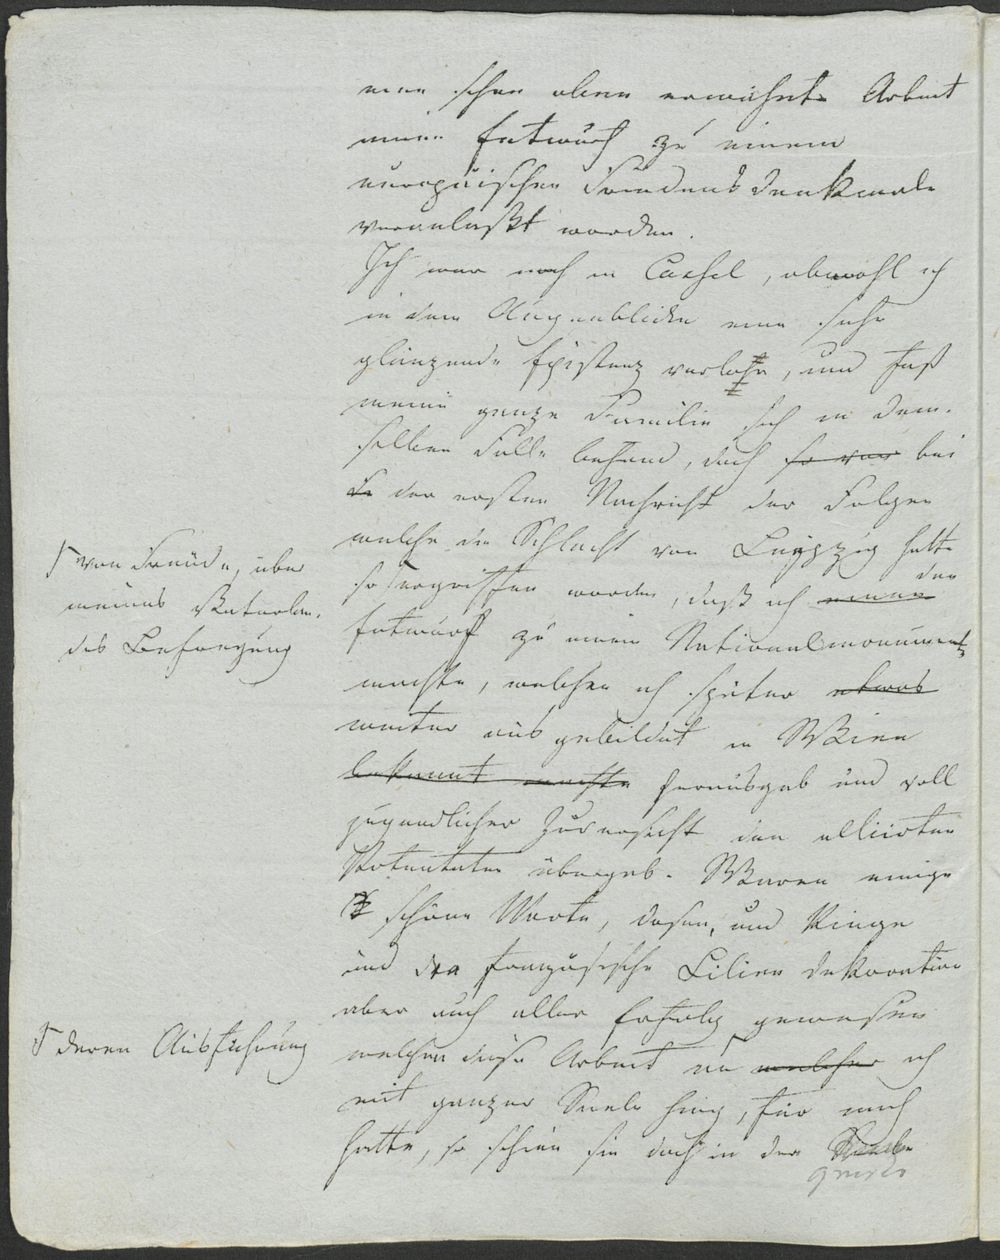 eine schon oben erwähnte Arbeit
mein Entwurf zu einem
europäischen Friedens Denkmale
veranlaßt worden.
Ich war noch in Cassel, obwohl ich
in dem Augenblicke eine sehr
glänzende Existenz verlohr, und fast
meine ganze Familie sich in dem-
selben Falle befand, doch so war bei
der ersten Nachricht der Folgen
welche die Schlacht von Leipzig hatte
so ergriffen worden, daß ich einen den
Entwurf zu einem Nationalmonument
machte, welchen ich später etwas
weiter ausgebildet in Wien
bekannt machte herausgab und voll
jugendlicher Zuversicht den alliirten
Potentaten übergab. Waren einige
schöne Worte, Dosen, und Ringe
und die französische Lilien Dekoration
aber auch aller Erfolg gewesen
welchen diese Arbeit an welcher ich
mit ganzer Seele hing, für mich
hatte, so schien sie doch in der Seele
von Freude, über
meines Vaterlan-
des Befreyung
deren Ausführung